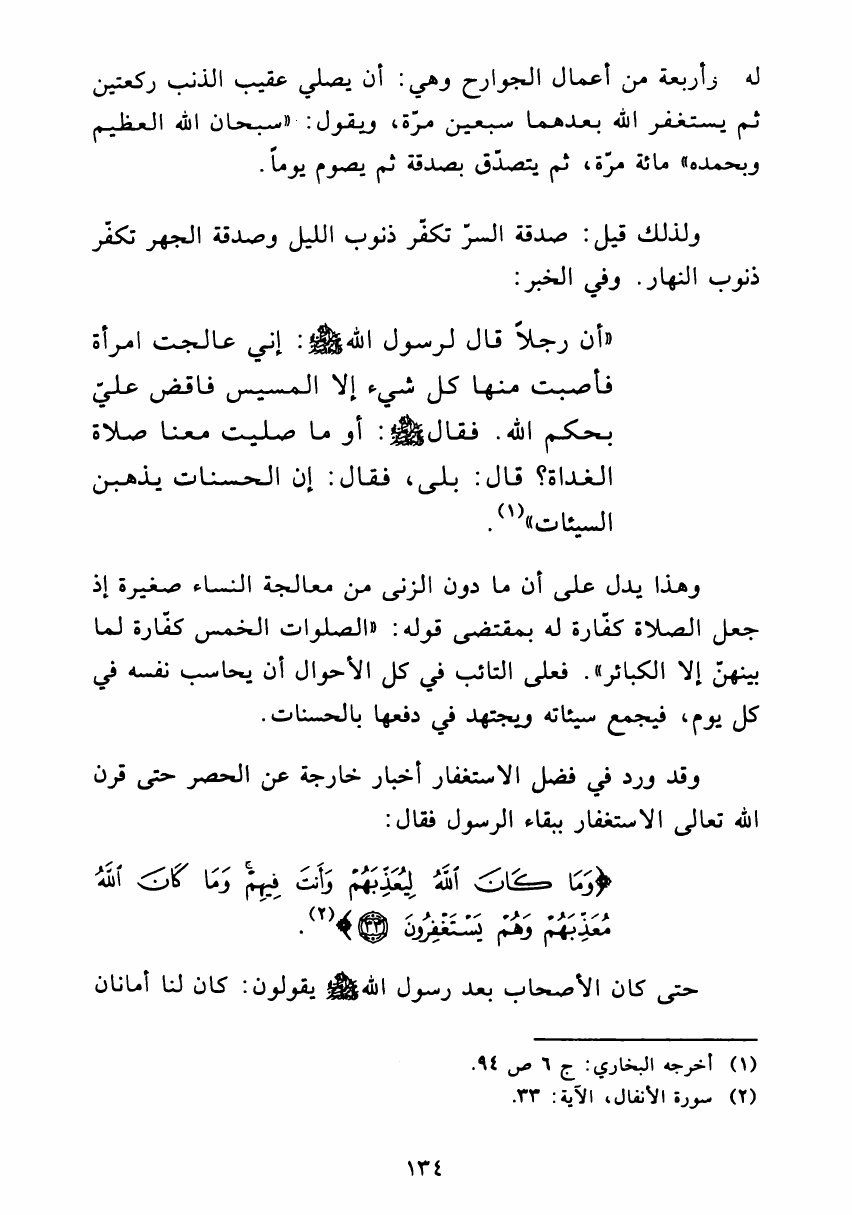 له وأربعة من أعمال الجوارح وهي: أن يصلي عقيب الذنب ركعتين
ثم يستغفر الله بعدهما سبعين مرّة، ويقول: «سبحان الله العظيم
وبحمده» مائة مرّة، ثم يتصدّق بصدقة ثم يصوم يوماً.
ولذلك قيل: صدقة السرّ تكفّر ذنوب الليل وصدقة الجهر تكفّر
ذنوب النهار. وفي الخبر:
«أن رجلاً قال لرسول الله ﷺ: إني عالجت امرأة
فأصبت منها كل شيء إلا المسيس فاقض عليّ
بحكم الله. فقال ﷺ: أو ما صليت معنا صلاة
الغداة؟ قال: بلى، فقال: إن الحسنات يذهبن
السيئات»(١).
وهذا يدل على أن ما دون الزنى من معالجة النساء صغيرة إذ
جعل الصلاة كفّارة له بمقتضى قوله: «الصلوات الخمس كفّارة لما
بينهنّ إلا الكبائر». فعلى التائب في كل الأحوال أن يحاسب نفسه في
كل يوم، فيجمع سيئاته ويجتهد في دفعها بالحسنات.
وقد ورد في فضل الاستغفار أخبار خارجة عن الحصر حتى قرن
الله تعالى الاستغفار ببقاء الرسول فقال:
﴿وَمَا كَانَ ٱللَّهُ لِيُعَذِّبَهُمْ وَأَنتَ فِيهِمْ ۚ وَمَا كَانَ ٱللَّهُ
مُعَذِّبَهُمْ وَهُمْ يَسْتَغْفِرُونَ ٣٣﴾(٢).
حتى كان الأصحاب بعد رسول الله ﷺ يقولون: كان لنا أمانان
(١) أخرجه البخاري: ج ٦ ص ٩٤.
(٢) سورة الأنفال، الآية: ٣٣.
١٣٤